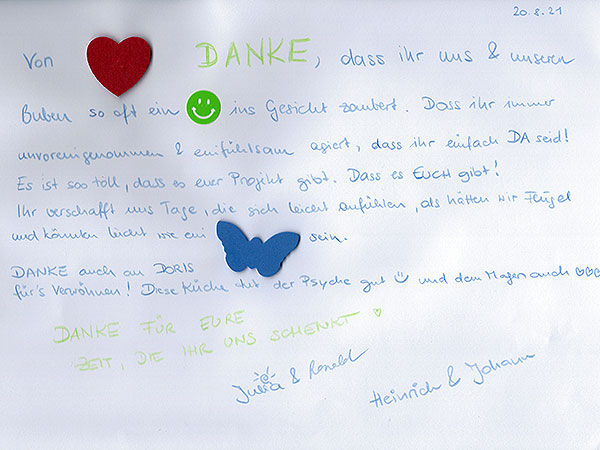 20.8.21
Von DANKE, dass ihr uns & unseren
Buben so oft ein ins Gesicht zaubert. Dass ihr immer
unvoreingenommen & einfühlsam agiert, dass ihr einfach DA seid!
Es ist soo toll, dass es euer Projekt gibt. Dass es EUCH gibt!
Ihr verschafft uns Tage, die sich leicht anfühlen, als hätten wir Flügel
und könnten leicht wie ein sein.
DANKE auch an DORIS
für's Verwöhnen! Diese Küche tut der Psyche gut und dem Magen auch
DANKE FÜR EURE
ZEIT, DIE IHR UNS SCHENKT
Julia & Ronald
Heinrich & Johann